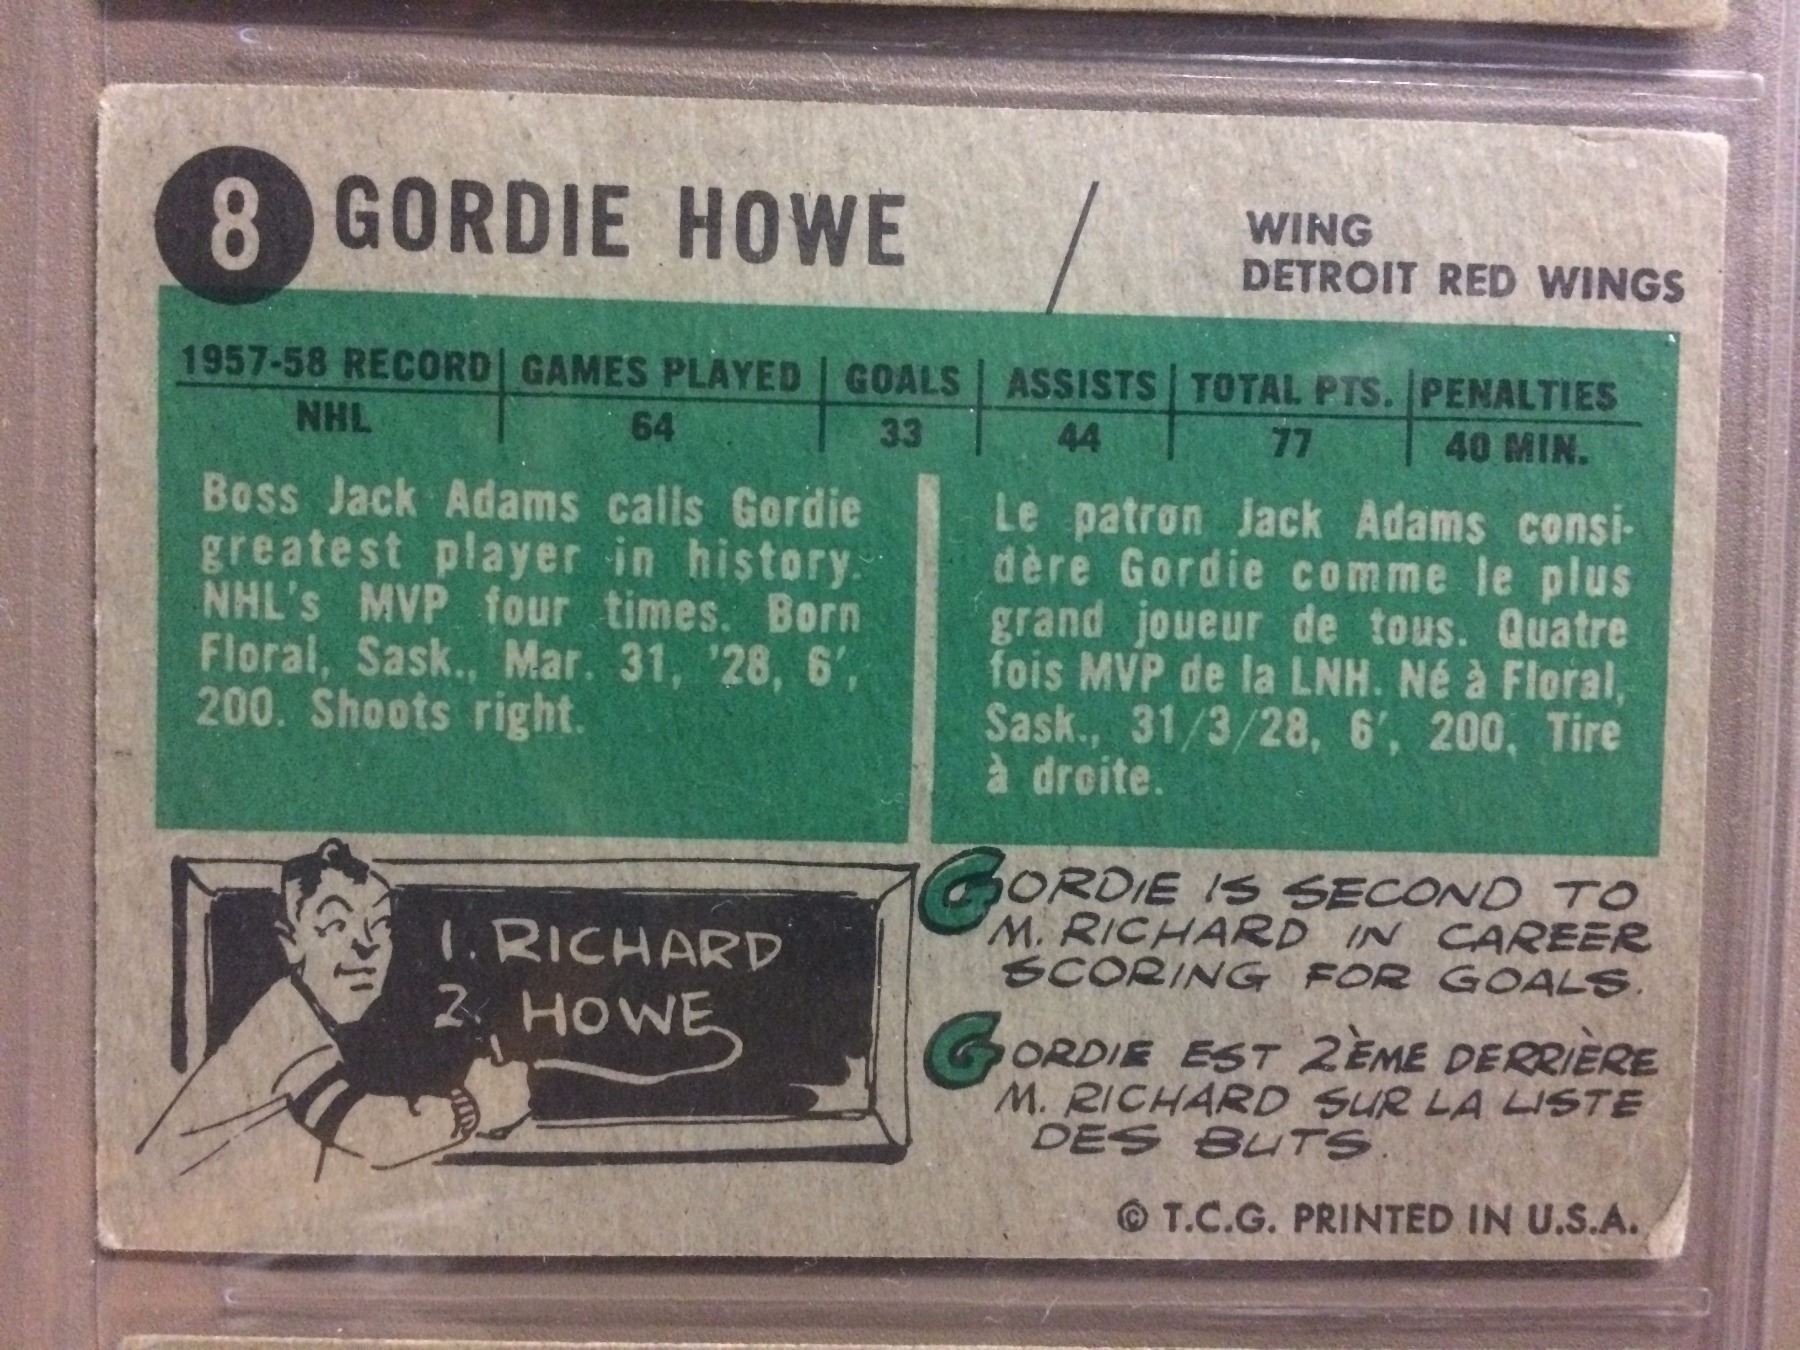 8 GORDIE HOWE
WING
DETROIT RED WINGS
1957-58 RECORD GAMES PLAYED GOALS ASSISTS TOTAL PTS. PENALTIES
NHL 64 33 44 77 40 MIN.
Boss Jack Adams calls Gordie
greatest player in history.
NHL's MVP four times. Born
Floral, Sask., Mar. 31, '28, 6',
200. Shoots right.
Le patron Jack Adams consi-
dère Gordie comme le plus
grand joueur de tous. Quatre
fois MVP de la LNH. Né à Floral,
Sask., 31/3/28, 6', 200, Tire
à droite.
1. RICHARD
2. HOWE
GORDIE IS SECOND TO
M. RICHARD IN CAREER
SCORING FOR GOALS.
GORDIE EST 2ÈME DERRIÈRE
M. RICHARD SUR LA LISTE
DES BUTS.
© T.C.G. PRINTED IN U.S.A.